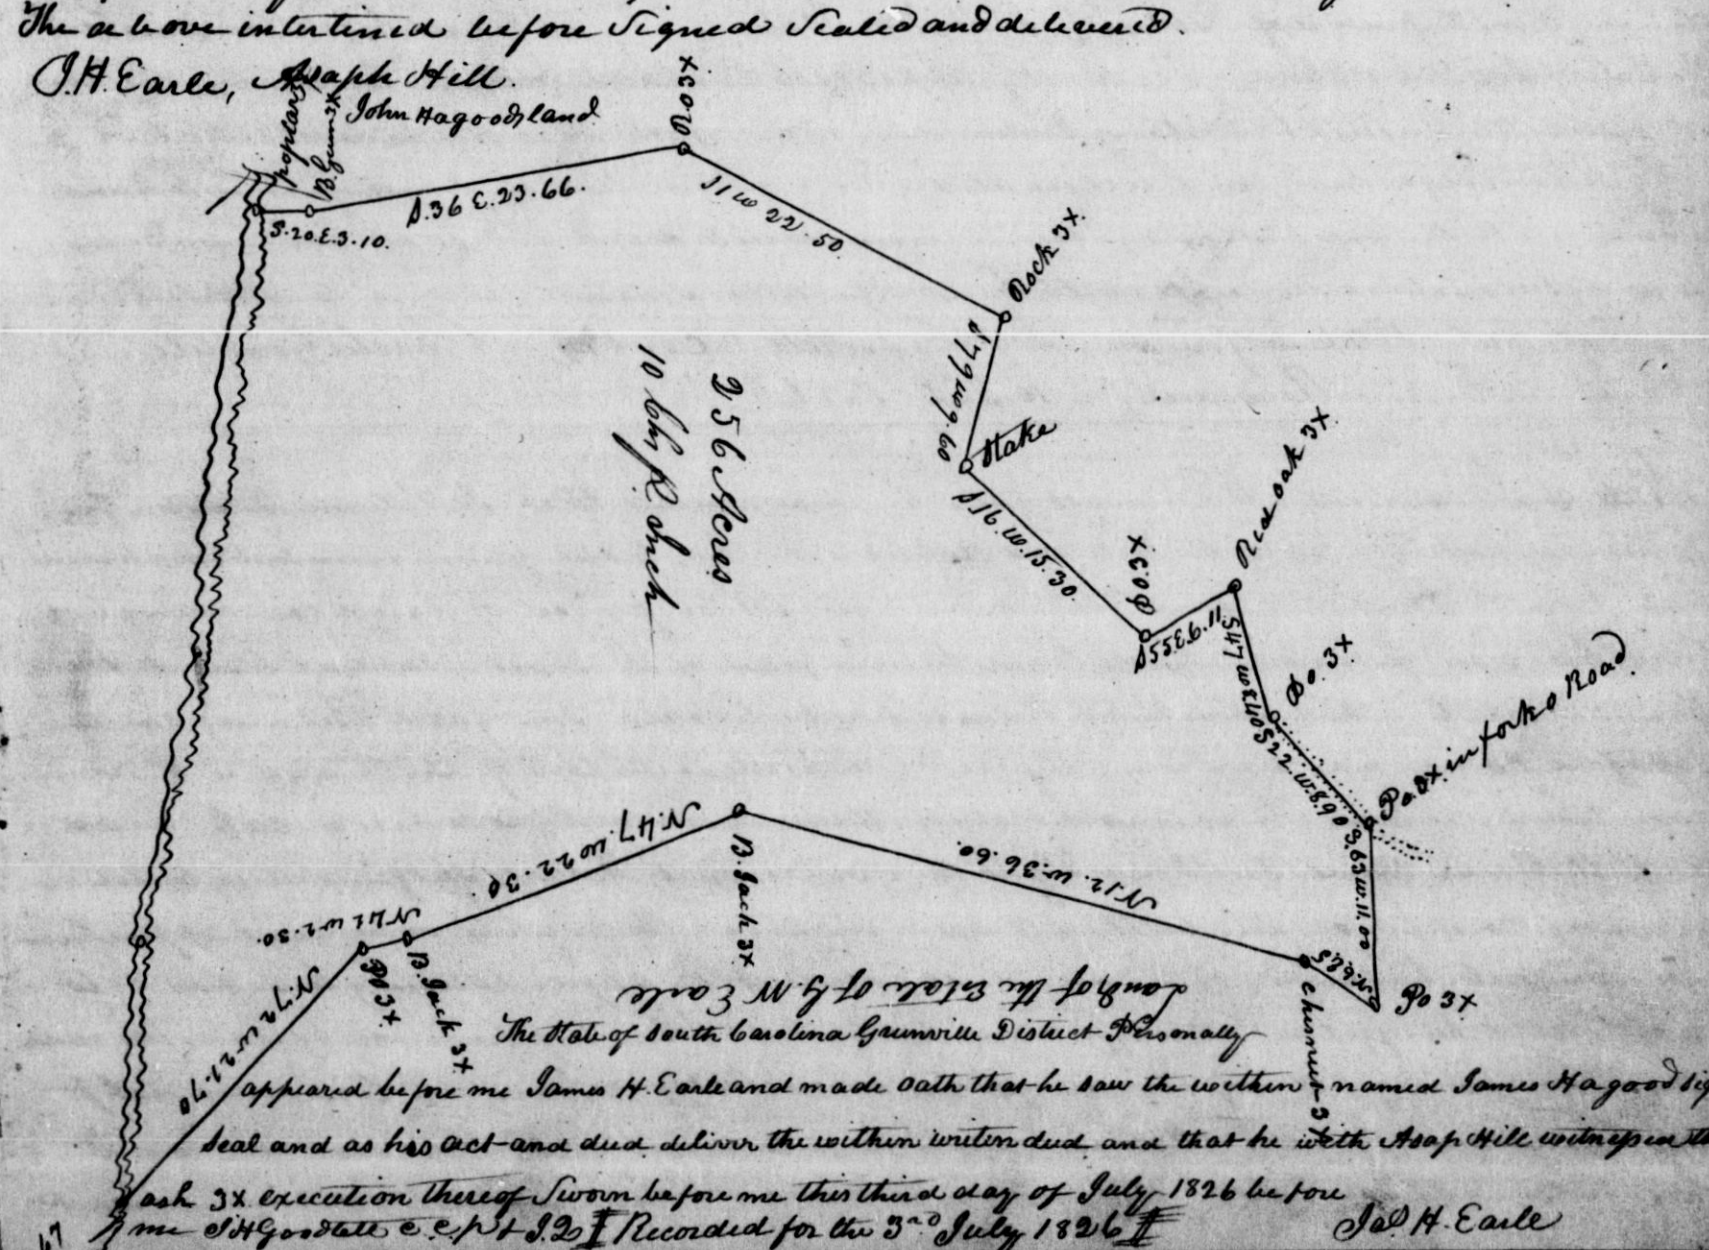 The above interlined before Signed Sealed and delivered.
J.H. Earle, Asaph Hill.
poplar 3x
B. Gum 3x
John Hagoods land
PO 3X
S. 20. E. 3. 10.
S. 36 E. 23. 66.
S 11 W 22. 50.
Rock 3x.
S 79 W 9. 60
Stake
S 16. W. 15. 30.
PO. 3X
S 55 E 9. 11.
Red oak 3x.
S 47 W 8. 40
Do. 3x.
S 22. W. 8. 90
Po 3x. in fork o Road.
S. 63 W. 11. 00
Po 3x
N. 6. 25
chesnut 3x
N. 12. W. 36. 60.
B. Jack 3x
N. 47. W 22. 30
B. Jack 3x
N 41 W 2. 50.
PO 3x.
N. 72 W 21. 70
256 Acres
10 Chs pr Inch
Land of the Estate of G. W Earle
The State of South Carolina Grunville District Personally
appeared before me James H. Earle and made oath that he saw the within named James Hagood sig
seal and as his act and deed deliver the within writen deed and that he with Asap Hill witnessed the
ash 3x execution thereof Sworn before me this third day of July 1826 before
me J H Goodlett C. C. P & J. Q Recorded for the 3rd July 1826
Jas. H. Earle
47